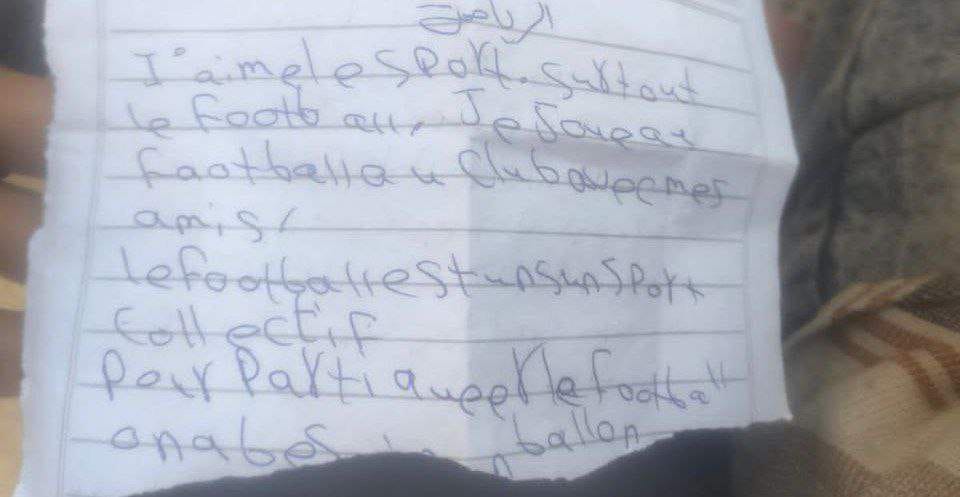 J'aime le sport. surtout
le football, Je joue au
footballau Clubavecmes
amis,
lefootballestunsunsport
Collectif
pour partiqueer le football
onabes ballon